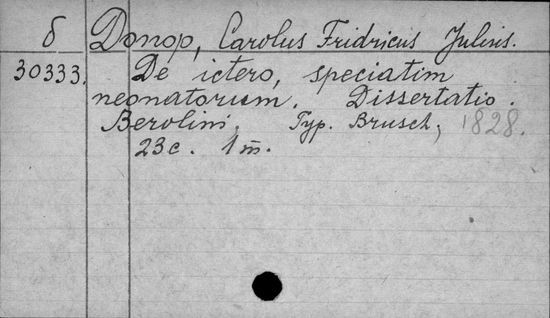 б Donop, Carolus Fridricus Julius.
30333. De ictero, speciatim
neonatorum. Dissertatio.
Berolini, Typ. Brusch, 1828.
23 c. 1 m.